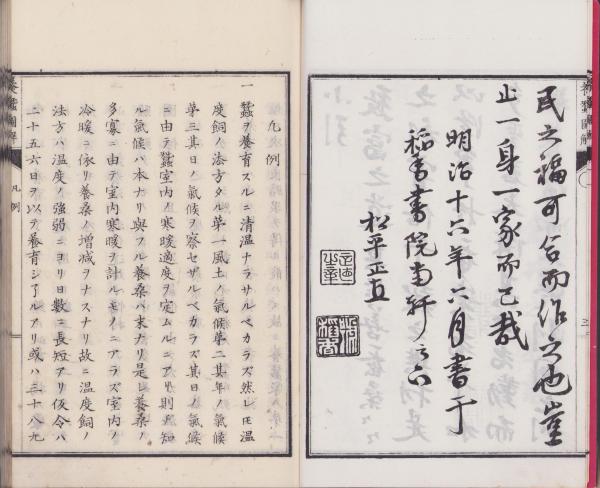 民之福可合而作之也豈
止一身一家而已哉
明治十六年六月書于
稻香書院南軒之下
松平正直
凡例
一 蠶ヲ養育スルニ清温ナラサルベカラズ然レ𪜈温
度飼ノ法方タル第一風土ノ氣候第二其年ノ氣候
第三其日ノ氣候ヲ察セザルベカラズ其日ノ氣候
ニ由テ蠶室内ノ寒暖適度ヲ定ムルニアリ則チ知
ル氣候ハ本ナリ與フル養桑ハ末ナリ是レ養桑ノ
多寡ニ由テ室内寒暖ヲ計ルモノニアラズ室内ノ
冷暖ニ依リ養桑ノ増減ヲナスナリ故ニ温度飼ノ
法方ハ温度ノ強弱ニヨリ日數ニ長短アリ仮令ハ
二十五六日ヲ以テ養育シ了ルアリ或ハ三十八九
凡例